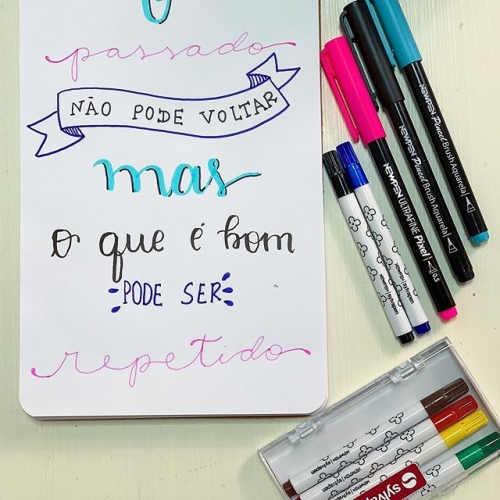 O
passado
NÃO PODE VOLTAR
mas
o que é bom
PODE SER
repetido
NEWPEN ULTRAFINE Pixel 0.5
NEWPEN Pincel Brush Aquarela
NEWPEN Pincel Brush Aquarela